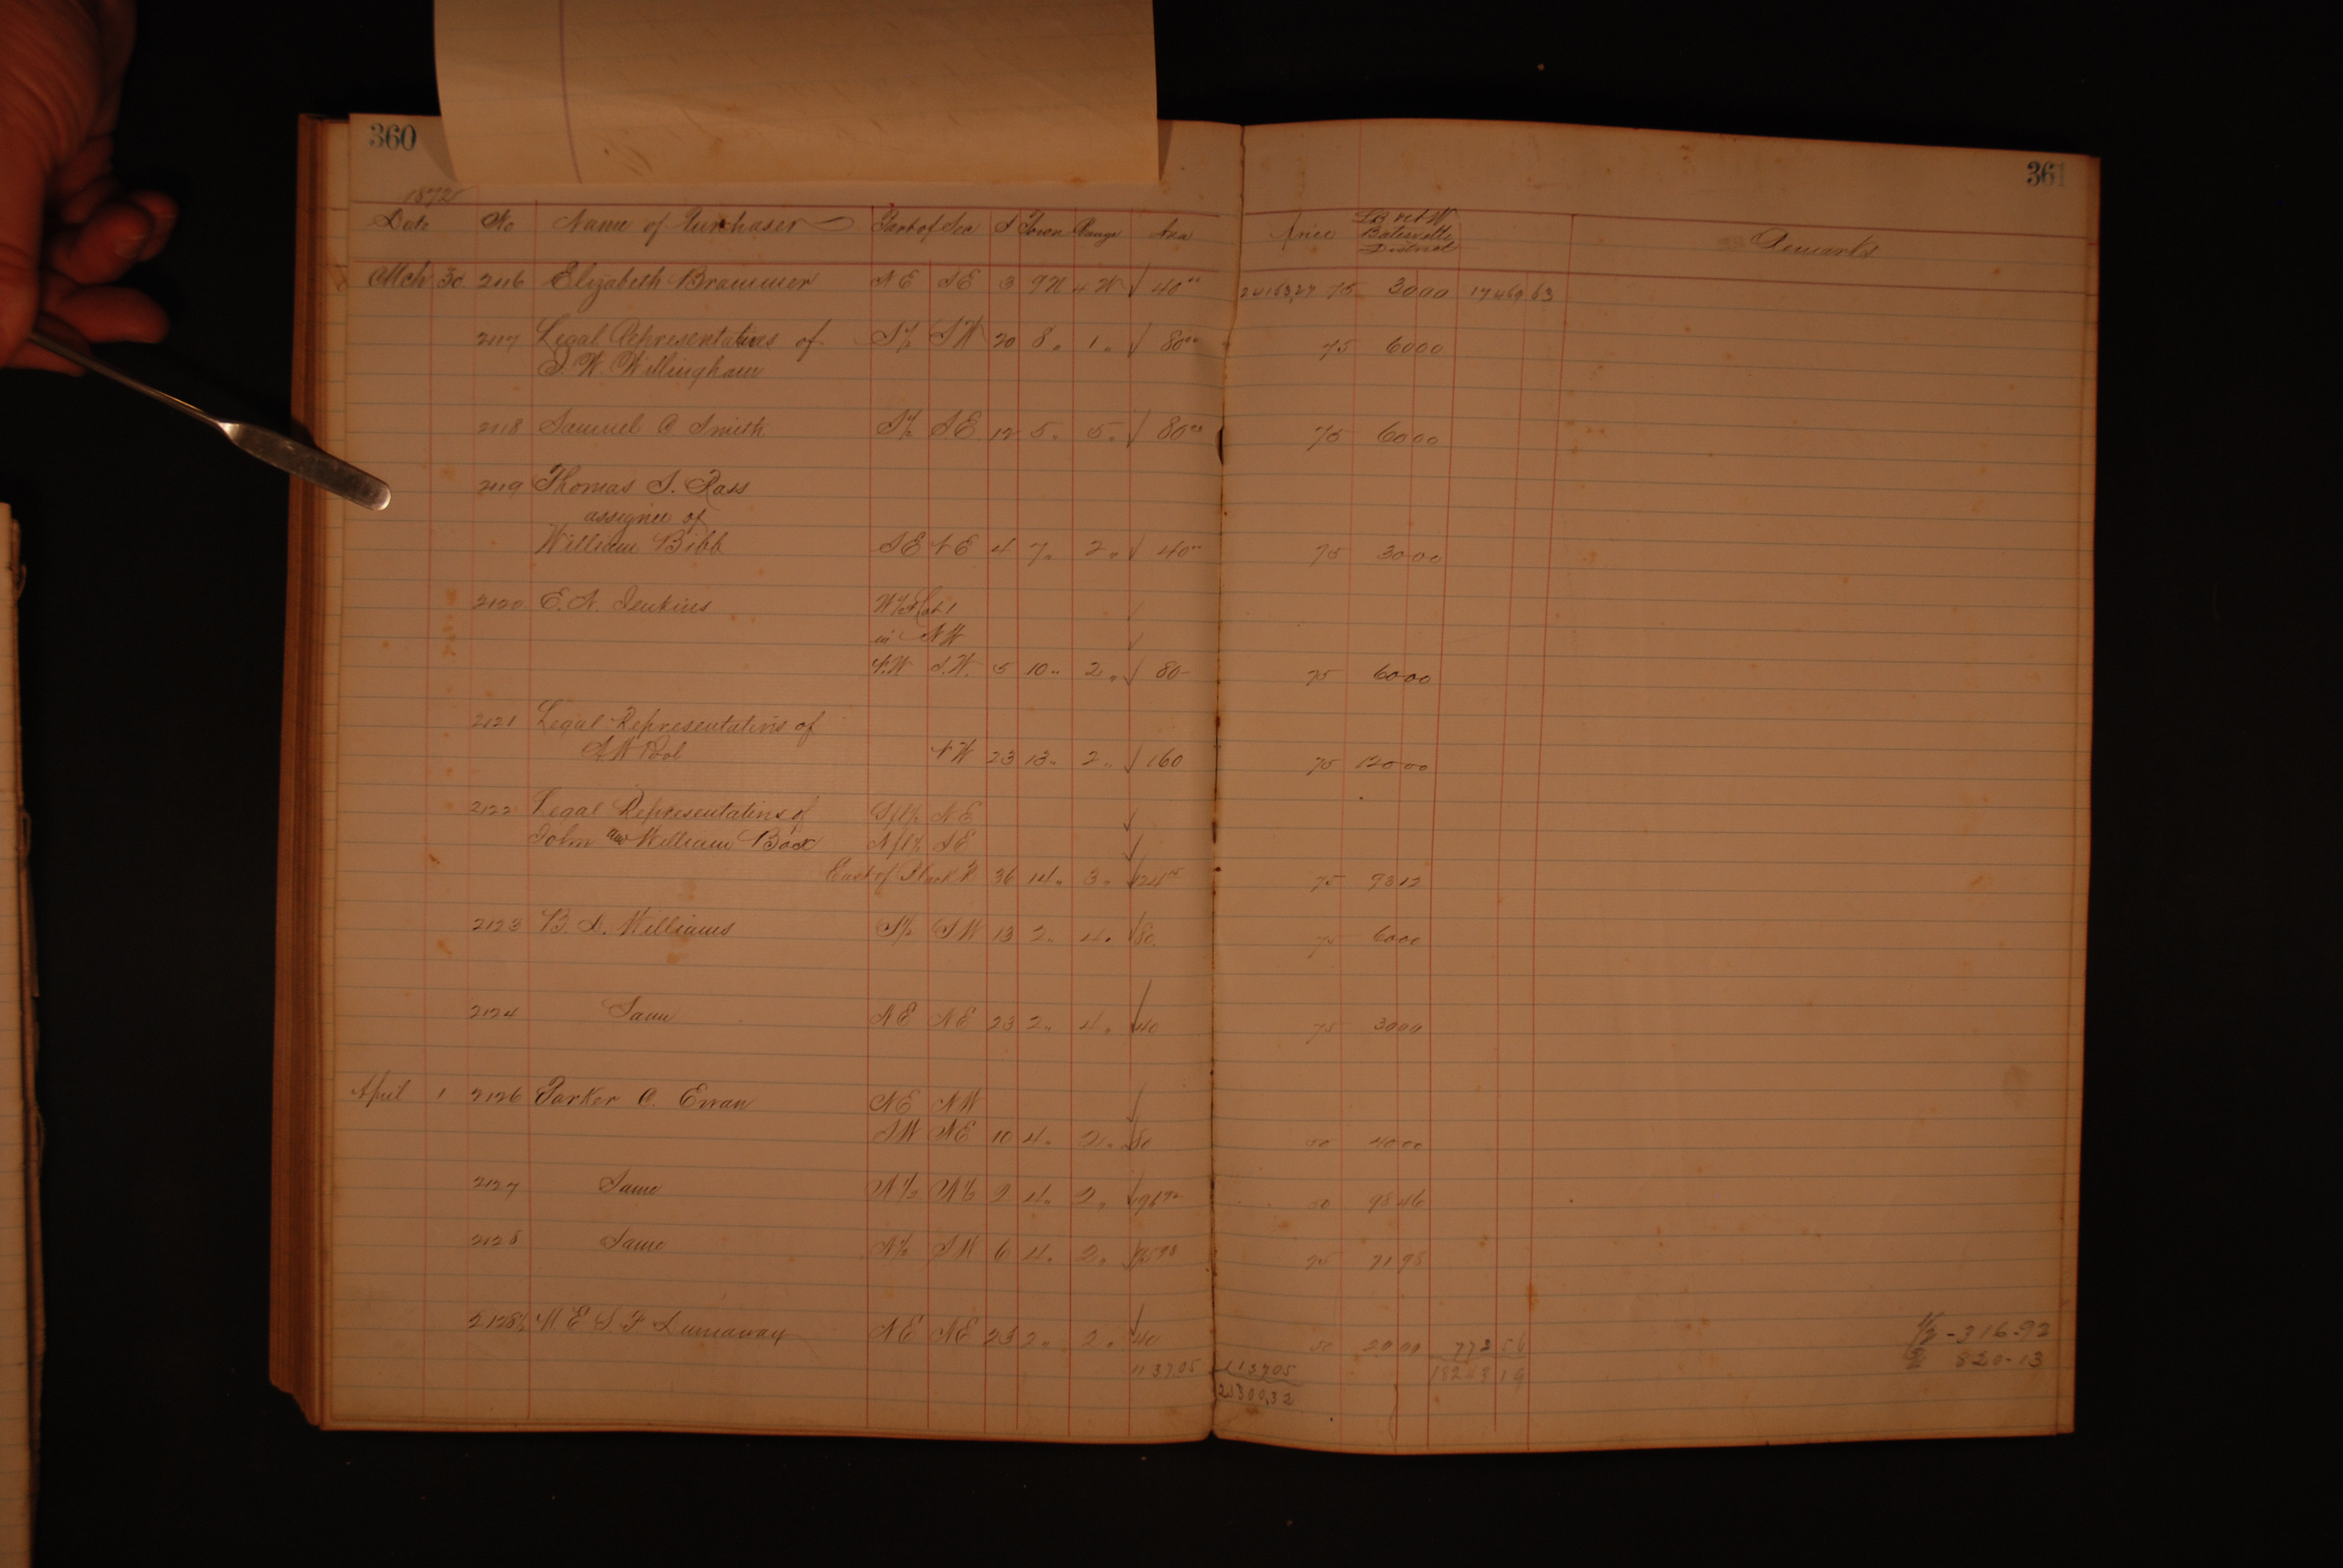 360
361
1872
Date No Name of Purchaser Part of Sec S Town Range Area Price Batesville District Remarks
Mch 30 2116 Elizabeth Brammer NE SE 3 9N 4W √ 40 24163,27 75 3000 17469 63
2117 Legal Representatives of S½ SW 20 8 " 1 " √ 80 75 6000
J. W. Willingham
2118 Samuel A. Smith S½ SE 12 5 " 5 " √ 80 75 6000
2119 Thomas S. Rass
assignee of
William Bibb SE NE 4 7 " 2 " √ 40 75 3000
2120 E. N. Jenkins W½ Lot 1 √
in NW √
N.W S.W. 5 10 " 2 " √ 80 75 6000
2121 Legal Representatives of
Pool NW 23 13 " 2 " √ 160 75 12000
2122 Legal Representatives of Sfl½ NE √
John and William Box Nfl½ SE √
East of Black R 36 14 " 3 " √ 124 75 9312
2123 B. D. Williams S½ SW 13 2 " 4 " √ 80 75 6000
2124 Same NE NE 23 2 " 4 " √ 40 75 3000
April 1 2126 Parker C. Ewan NE NW √
SW NE 10 4 " 2 " √ 80 50 4000
2127 Same N½ N½ 2 4 " 2 " √ 196 92 50 9846
2128 Same N½ SW 6 4 " 2 " √ 95 98 75 7198
2128½ M E S. F. Dunaway NE NE 23 2 " 2 " √ 40 50 2000 772 56
1137.05 1137.05 18243 19
25300,32
½ - 316.92
820.13